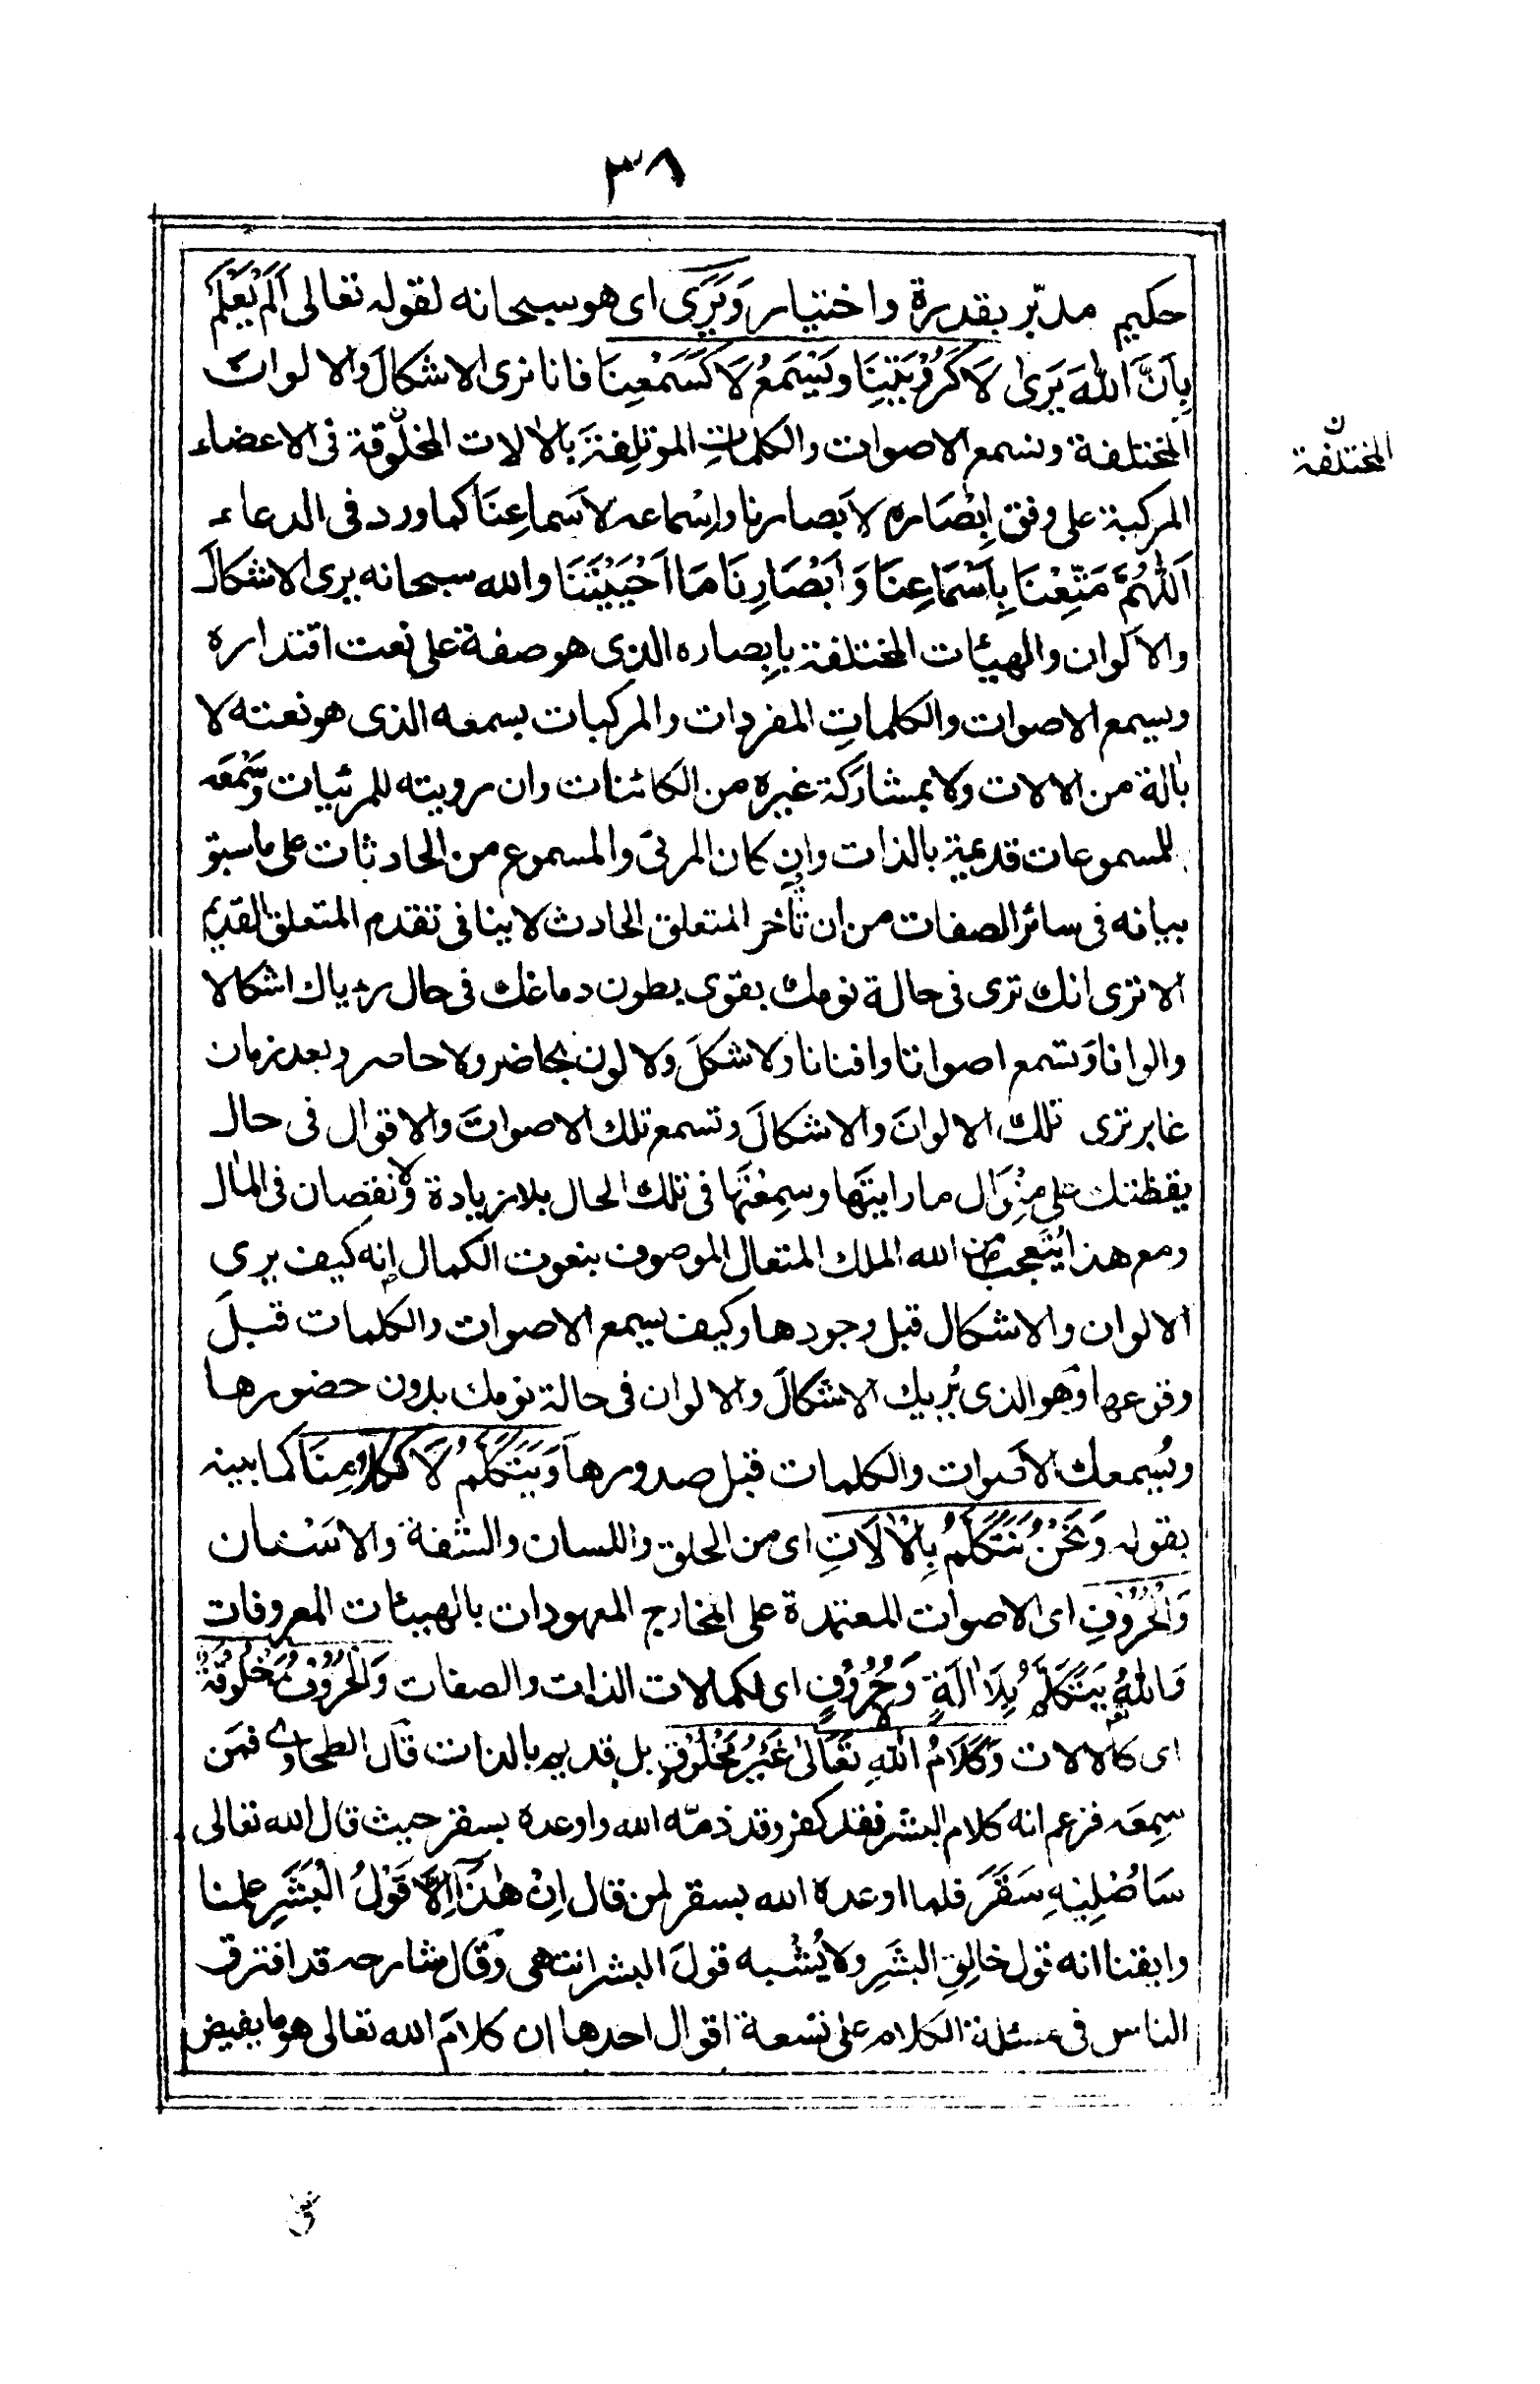 ٣٨
حكيم مدبّر بقدرة واختيار وَيَرَى اى هو سبحانه لقوله تعالى اَلَمْ يَعْلَمْ
بِاَنَّ اللّٰهَ يَرىٰ لَا كَرُؤْيَتِنَا وَيَسْمَعُ لَا كَسَمْعِنَا فانا نرى الاشكالَ والالوانَ
المختلفة ونسمع الاصوات والكلماتِ الموتلِفةَ بالآلات المخلوقة فى الاعضاء
المختلفة
المركبة على وفق اِبْصَاره لاَبصارنا واِسْماعه لاَسماعِنَا كما ورد فى الدعاء
اَللّٰهُمَّ مَتِّعْنَا بِاَسْمَاعِنَا وَاَبْصَارِنَا مَا اَحْيَيْتَنَا والله سبحانه يرى الاشكالَ
والالوان والهيئات المختلفة باِبصاره الذى هو صفة على نعت اقتداره
ويسمع الاصوات والكلماتِ المفردات والمركبات بسمعه الذى هو نعته لا
بآلة من الالات ولا بمشاركة غيره من الكائنات وان رويته للمرئيات وسَمْعَه
للمسموعات قديمة بالذات وان كان المرئىّ والمسموع من الحادثات على ما سبق
بيانه فى سائر الصفات من ان تأخر المتعلق الحادث لا ينافى تقدم المتعلق القديم
الا ترى انك ترى فى حالة نومك بقوى بطون دماغك فى حال رؤياك اشكالا
والوانا وتسمع اصواتا وافنانا ولا شكلَ ولا لون بحاضر ولا حاصر وبعد زمان
غابر ترى تلك الالوانَ والاشكالَ وتسمع تلك الاصواتَ والاقوال فى حال
يقظتك على مِنْوَال ما رايتَها وسمِعْتَها فى تلك الحال بلا زيادة ولا نقصان فى المال
ومع هذا يُتعجب من الله الملك المتعال الموصوف بنعوت الكمال اِنه كيف يرى
الالوان والاشكال قبل وجودها وكيف يسمع الاصوات والكلمات قبلَ
وقوعها وهو الذى يُريك الاشكالَ والالوان فى حالة نومك بدون حضورها
ويُسمعك الاصوات والكلمات قبل صدورها وَيَتَكَلَّمُ لَا كَكَلَامِنَا كما بينه
بقوله وَنَحْنُ نَتَكَلَّمُ بِالْاٰلَاتِ اى من الحلق واللسان والشفة والاسْنان
وَالْحُرُوْفِ اى الاصوات المعتمدة على المخارج المعهودات بالهيئات المعروفات
وَاللّٰهُ يَتَكَلَّمُ بِلَا اٰلَةٍ وَحُرُوْفٍ اى لكمالات الذات والصفات وَالْحُرُوْفُ مَخْلُوْقَةٌ
اى كالالات وَكَلَامُ اللّٰهِ تَعَالىٰ غَيْرُ مَخْلُوْقٍ بل قديم بالذات قال الطحاوى فمَن
سمِعَه فزعم انه كلام البشر فقد كفر وقد ذمّه الله واوعده بسقر حيث قال الله تعالى
سَاُصْلِيْهِ سَقَرَ فلما اوعده الله بسقر لمن قال اِنْ هٰذَا اِلَّا قَوْلُ الْبَشَرِ علمنا
وايقنا انه قول خالِقِ البشَرِ ولا يُشْبه قولَ البشر انتهى وقال شارحه قد افترق
الناس فى مسئلة الكلام على تسعة اقوال احدها ان كلامَ الله تعالى هو ما يفيض